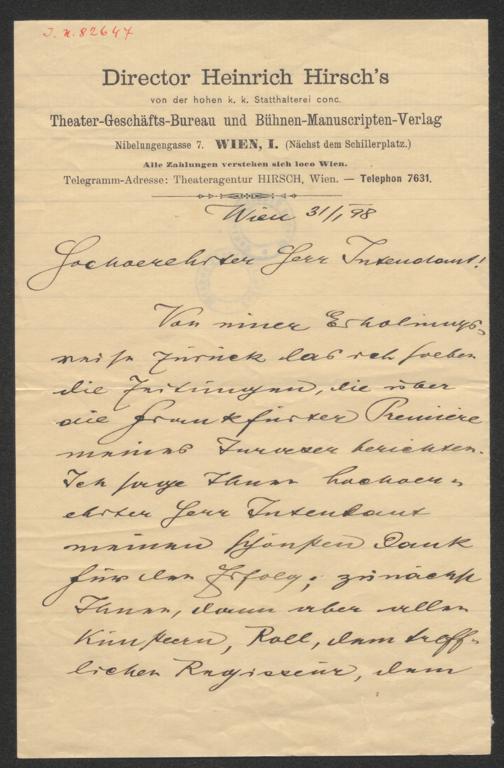 J. N. 82647
Director Heinrich Hirsch's
von der hohen k. k. Statthalterei conc.
Theater-Geschäfts-Bureau und Bühnen-Manuscripten-Verlag
Nibelungengasse 7. WIEN, I. (Nächst dem Schillerplatz.)
Alle Zahlungen verstehen sich loco Wien.
Telegramm-Adresse: Theateragentur HIRSCH, Wien. — Telephon 7631.
Wien 31/I 98
Hochverehrter Herr Intendant!
Von einer Erholungs-
reise zurück las ich soeben
die Zeitungen, die über
die Frankfurter Premiere
meines berichten.
Ich sage Ihnen hochver-
ehrter Herr Intendant
meinen schönsten Dank
für den Erfolg; zunächst
Ihnen, dann aber allen
Künstlern, Roll, dem treff-
lichen Regisseur, dem